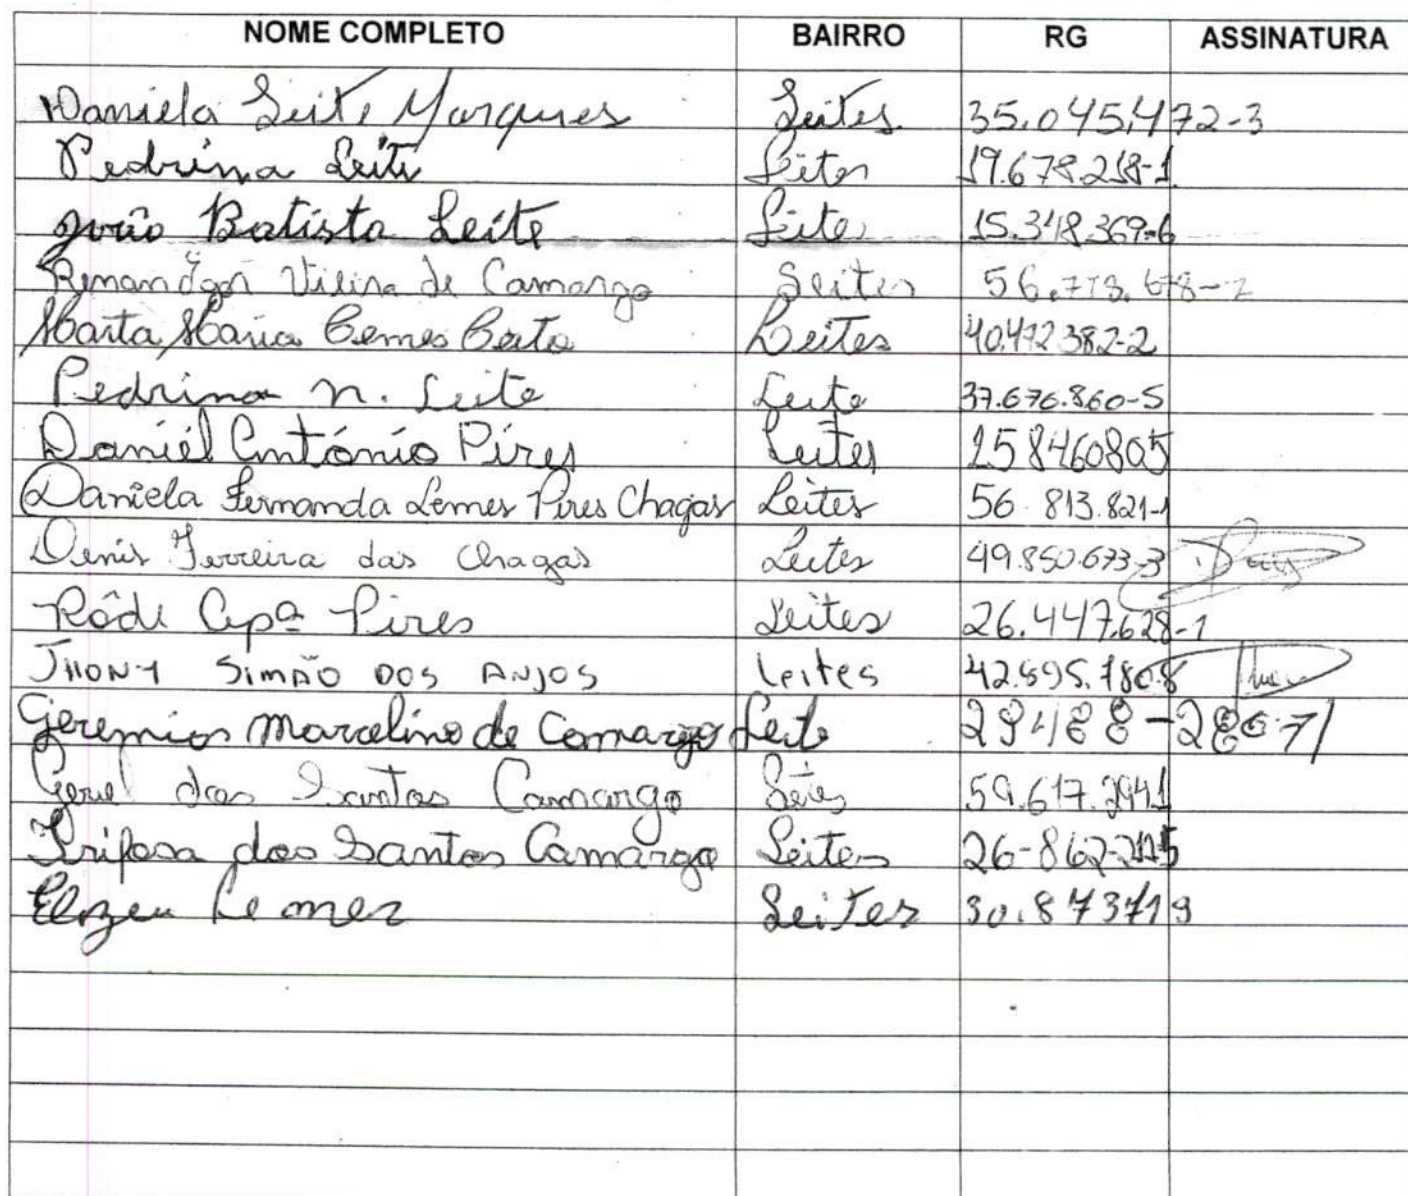 NOME COMPLETO BAIRRO RG ASSINATURA
Daniela Leite Marques Leites 35.045.472-3
Pedrina Leite Leites 19.678.218-1
João Batista Leite Leites 15.348.369-6
Vieira de Camargo Leites
Marta Maria Lemes Leites 40.472382-2
Pedrina n. Leite Leite 37.676.860-5
Daniel António Pires Leites 258460805
Daniela Fernanda Lemes Pires Chagas Leites 56.813.821-1
Denis Ferreira das Chagas Leites 49.850.673-3
Rôdi Apª Pires Leites 26.447.628-1
JHONY SIMÃO DOS ANJOS Leites
Geremias Marcelino de Camargo Leite
dos Santos Camargo
Trifosa dos Santos Camargo Leites
Elizeu Lemes Leites 30.873719